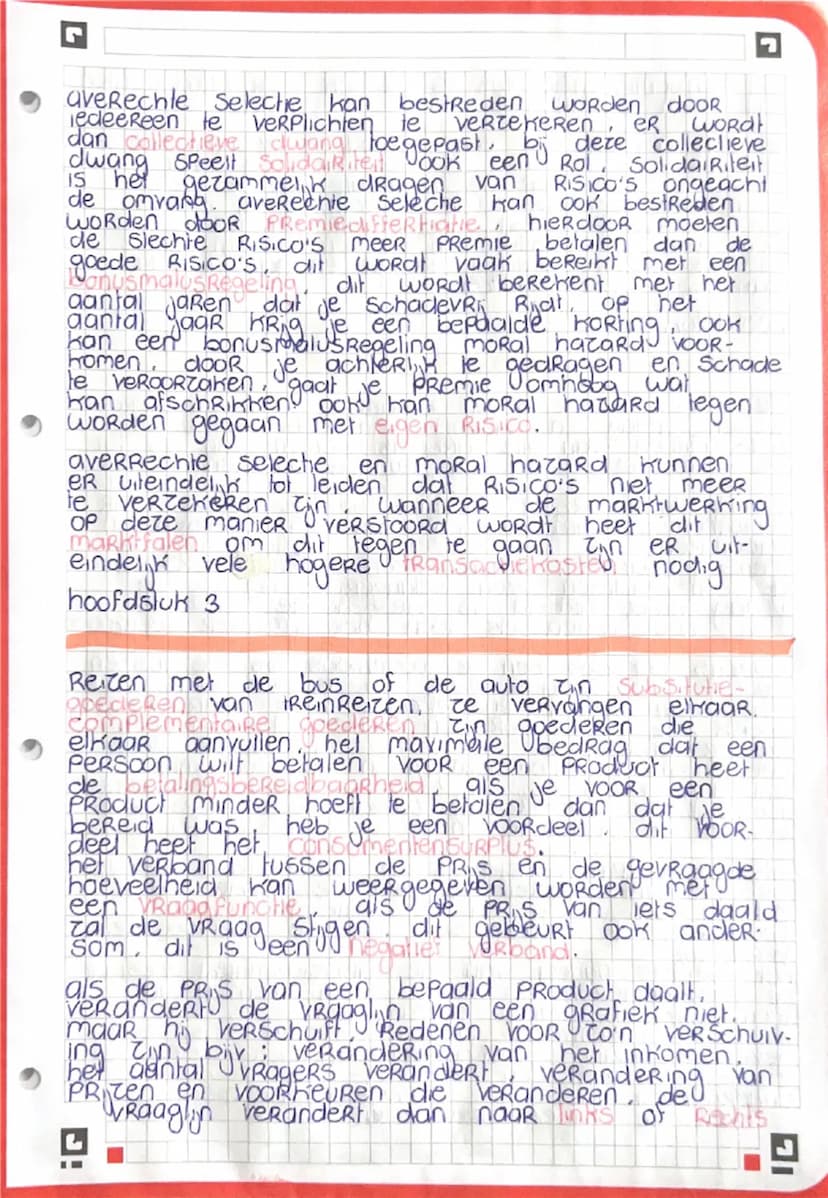 averechte selectie kan bestreden worden door
iedereen te verplichten te verzekeren. er wordt
dan collectieve dwang toegepast. bij deze collectieve
dwang speelt solidariteit ook een rol. solidariteit
is het gezammelijk dragen van risico's ongeacht
de omvang. averechte selectie kan ook bestreden
worden door premiediffertiatie, hierdoor moeten
de slechte risico's meer premie betalen dan de
goede risico's. dit wordt vaak bereikt met een
bonusmalusregeling. dit wordt berekent met het
aantal jaren dat je schadevrij rijdt. op het
aantal jaar krijg je een bepaalde korting. ook
kan een bonusmalusregeling moral hazard voor-
komen. door je achterlijk te gedragen en schade
te veroorzaken, gaat je premie omhoog wat
kan afschrikken. ook kan moral hazard tegen
worden gegaan met eigen risico.
averrechte selectie en moral hazard kunnen
er uiteindelijk tot leiden dat risico's niet meer
te verzekeren zijn. wanneer de marktwerking
op deze manier verstoord wordt heet dit
marktfalen om dit tegen te gaan zijn er uit-
eindelijk vele hogere transactiekosten nodig
hoofdstuk 3
Reizen met de bus of de auto zijn substitutie-
goederen van treinreizen. ze vervangen elkaar.
complementaire goederen zijn goederen die
elkaar aanvullen. het maximale bedrag dat een
persoon wilt betalen voor een product heet
de betalingsbereidbaarheid. als je voor een
product minder hoeft te betalen dan dat je
bereid was, heb je een voordeel. dit voor-
deel heet het consumentensurplus.
het verband tussen de prijs en de gevraagde
hoeveelheid kan weergegeven worden met
een vraagfunctie. als de prijs van iets daald
zal de vraag stijgen. dit gebeurt ook ander-
som. dit is een negatief verband.
als de prijs van een bepaald product daalt,
verandert de vraaglijn van een grafiek niet.
maar hij verschuift. Redenen voor zo'n verschuiv-
ing zijn bijv: verandering van het inkomen,
het aantal vragers verandert, verandering van
prijzen en voorkeuren die veranderen. de
vraaglijn verandert dan naar links of rechts